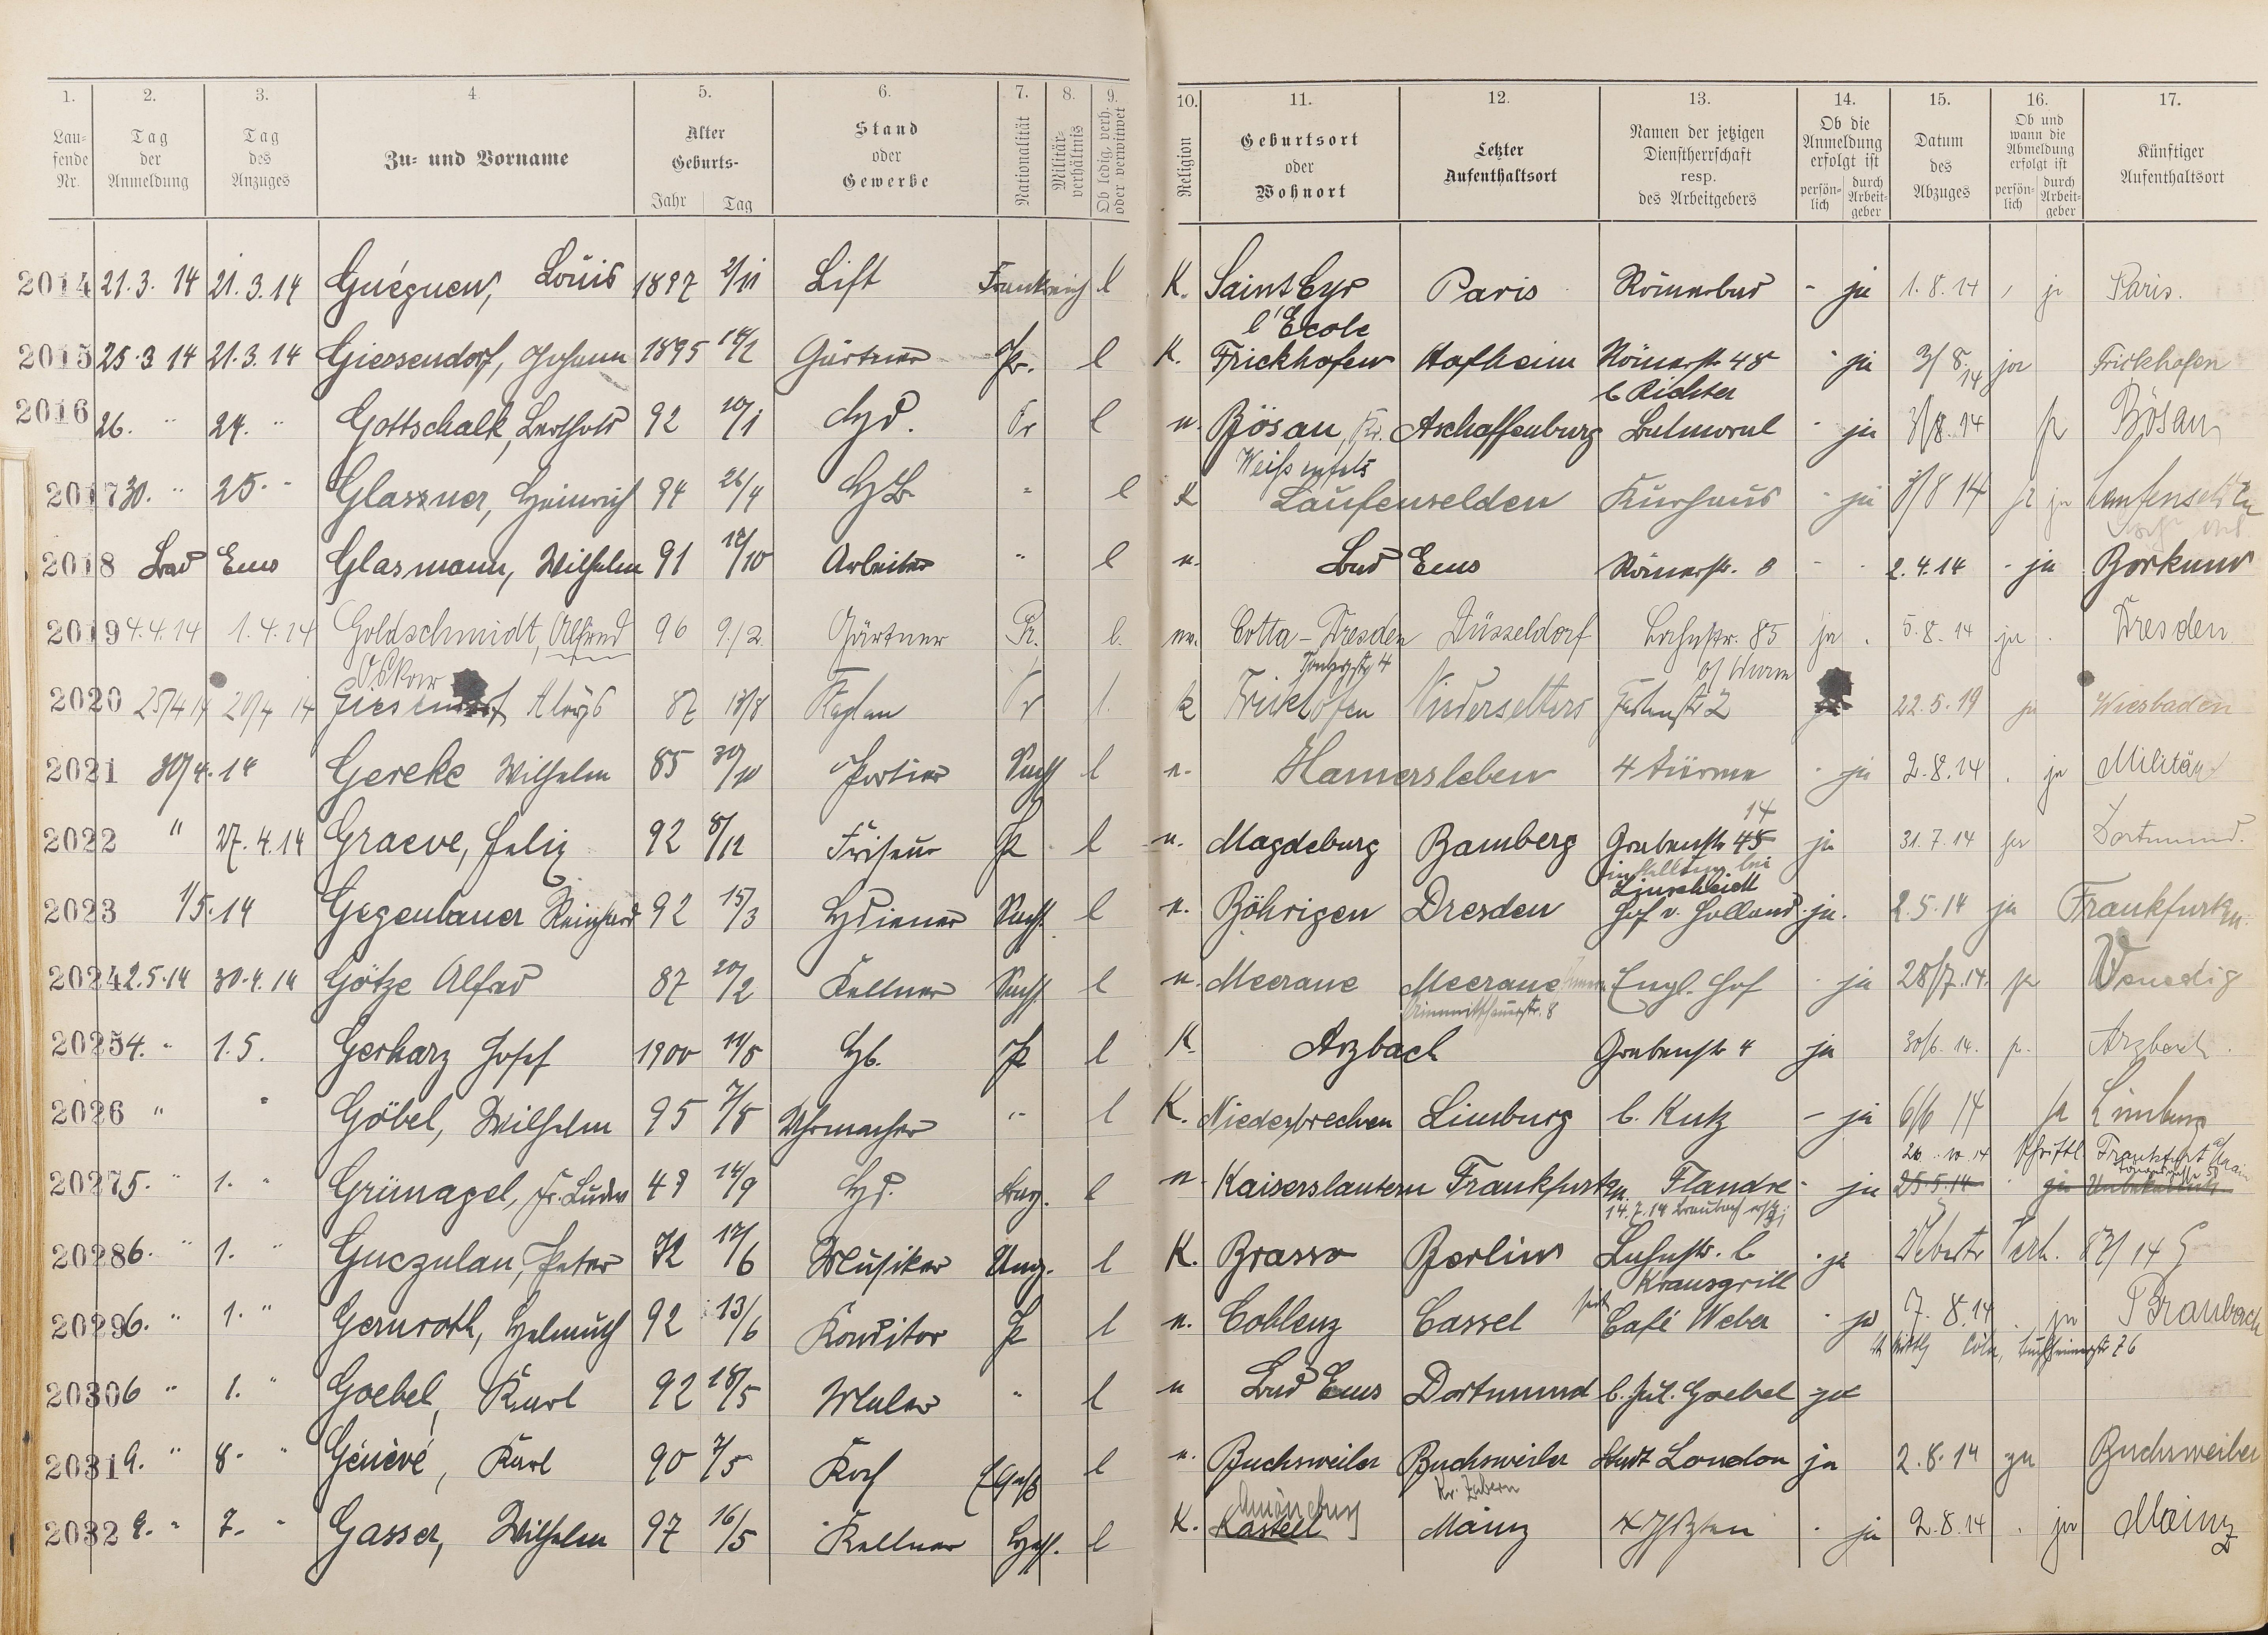 1. 2. 3. 4. 5. 6. 7. 8. 9. 10. 11. 12. 13. 14. 15. 16. 17.
Lau- fende Nr. Tag der Anmeldung Tag des Anzuges Zu- und Vorname Alter Geburts- Jahr Tag Stand oder Gewerbe Nationalität Militär- verhältnis Ob ledig, verh. oder verwitwet Religion Geburtsort oder Wohnort Letzter Aufenthaltsort Namen der jetzigen Dienstherrschaft resp. des Arbeitgebers Ob die Anmeldung erfolgt ist persön- lich durch Arbeit- geber Datum des Abzuges Ob und wann die Abmeldung erfolgt ist persön- lich durch Arbeit- geber Künftiger Aufenthaltsort
2014 21.3.14 21.3.14 Guéguen, Louis 1897 2/11 Lift Frankreich l K. Saint Cyr Paris Römerbad - ja 1.8.14 ja Paris.
l'Ecole
2015 25.3 14 21.3.14 Giessendorf, Johann 1895 Gärtner Pr. l K. Frickhofen Hofheim Römerstr. 48 - ja 3/8 14 ja Frickhofen
b Richter
2016 26. " 24. " Gottschalk, Berthold 92 10/1 Hd. Pr l n. Bösau, Kr. Aschaffenburg Balmoral - ja 3/8 14 ja Bösau
Weissenfels
2017 30. " 25. " Glassner, Heinrich 94 26/4 HB " l K Laufenselden Kurhaus - ja 3/8 14 ja Laufenselden
2018 Bad Ems Glasmann, Wilhelm 91 Arbeiter " l n. Bad Ems Römerstr. 8 - - 2.4.14 - ja Borkum
2019 4.4.14 1.4.14 Goldschmidt, Alfred 96 9/2 Gärtner Pr. l. Cotta-Dresden Düsseldorf Lahnstr. 85 ja . 5.8.14 ja . Dresden
Oskar
2020 25/4 14 20/4 14 Aloys 87 18/8 Kaplan Pr l. k Frickhofen Niederselters 22.5.19 ja Wiesbaden
2021 30/4.14 Gereke Wilhelm 85 30/10 Portier l n. Hamersleben 4 Türme - ja 2.8.14 . ja Militär
14
2022 " 27.4.14 Graeve, Felix 92 8/12 Friseur Pr l n. Magdeburg Bamberg Grabenstr. 45 ja 31.7.14 ja Dortmund.
in Stellung bei Linscheidt
2023 1/5.14 Gegenbauer Reinhard 92 15/3 Hdiener Sachs. l n. Böhrigen Dresden Hof v. Holland ja. 2.5.14 ja Frankfurt a/M.
2024 2.5.14 30.4.14 Götze Alfred 87 20/2 Kellner Sachs. l n. Meerane Meerane Engl. Hof - ja 28/7.14. ja Venedig
2025 4. " 1.5. Gerharz Josef 1900 11/8 Hb. Pr l K. Arzbach Grabenstr 4 ja 30/6.14. ja. Arzbach.
2026 " " Göbel, Wilhelm 95 7/8 Uhrmacher " l K. Niederbrechen Limburg b. Kutz - ja 6/6 14 ja Limburg
26.10.14 schriftl Frankfurt a/Main
2027 5. " 1. " Grünagel, Fr. Ludw 14/9 Hd. Bay. l n. Kaiserslautern Frankfurt a/M. Flandre - ja 25.5.14 ja Unbekannt
14.7.14 Braubach
2028 6. " 1. " Guczulan, Peter 12/6 Musiker Ung. l K. Brasso Berlin Lahnstr. b. - ja
Krausgrill
2029 6. " 1. " Gernroth, Helmuth 92 13/6 Konditor Pr l n. Coblenz Cassel Café Weber - ja 7.8.14 . ja Braubach
2030 6 " 1. " Goebel, Karl 92 18/5 Maler " l n Bad Ems Dortmund b. Jul. Goebel ja
2031 9. " 8. " Génévé, Karl 90 7/5 Koch l n. Buchsweiler Buchsweiler Stadt London ja 2.8.14 ja Buchsweiler
Kr. Zabern
Amöneburg
2032 9. " 7. " Gasser, Wilhelm 97 16/5 Kellner Hess. l K. Kastell Mainz - ja 2.8.14 . ja Mainz